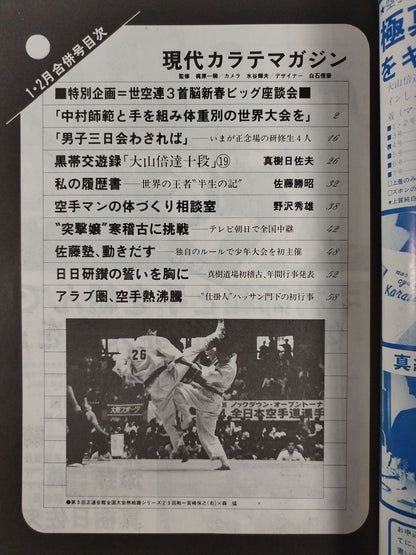 1・2月合併号目次
現代カラテマガジン
監修 梶原一騎／カメラ 水谷輝夫／デザイナー 白石信康
■特別企画＝世空連3首脳新春ビッグ座談会■
「中村師範と手を組み体重別の世界大会を」 2
「男子三日会わされば」 ―いまが正念場の研修生4人 16
黒帯交遊録「大山倍達十段」⑲ 真樹日佐夫 26
私の履歴書 ―世界の王者“半生の記” 佐藤勝昭 32
空手マンの体づくり相談室 野沢秀雄 38
“突撃嬢”寒稽古に挑戦 ―テレビ朝日で全国中継 42
佐藤塾、動きだす ―独自のルールで少年大会を初主催 48
日日研鑽の誓いを胸に ―真樹道場初稽古、年間行事発表 52
アラブ圏、空手熱沸騰 ―“仕掛人”ハッサン門下の初行事 58
26
大阪スポーツ
ノックダウン・オープントーナ
全日本空手道選手
●第3回正道会館全国大会熱戦譜シリーズ②3回戦＝宮崎保之(右)×森 猛
極真
をキ
大山倍
Karate
真